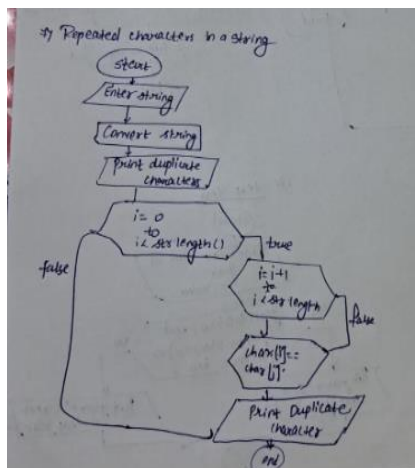 Repeated characters in a string
start
Enter string
Convert string
Print duplicate
characters
i= 0
to
i< str length()
true
false
i= i+1
to
i < str length
false
char[i]==
char[j]
Print Duplicate
character
end